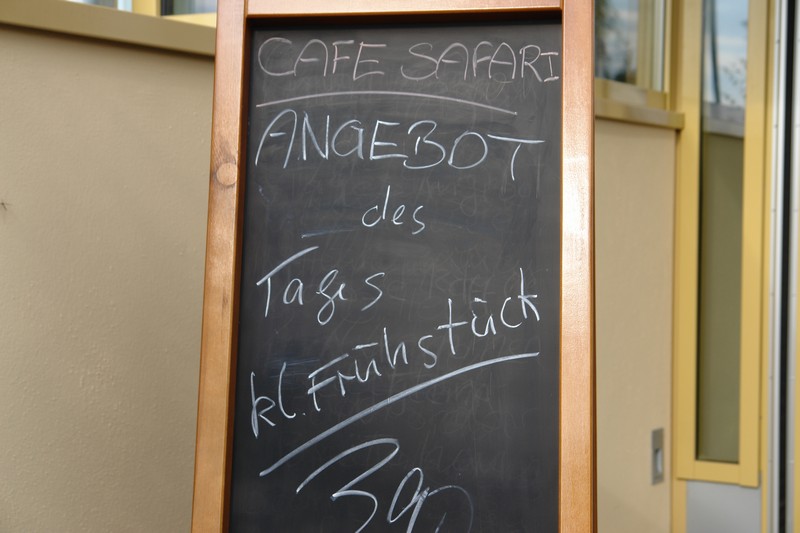 CAFE SAFARI
ANGEBOT
des
Tages
kl. Frühstück
390